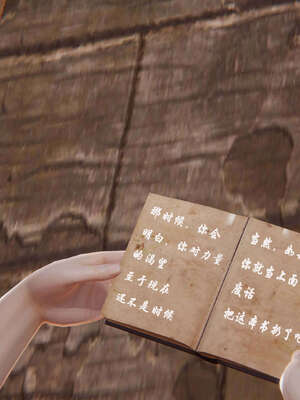 那时候，你会
明白，你对力量
的渴望
至于现在
还不是时候
当然，
你就当上面
废话
把这本书扔了吧